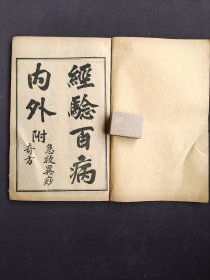 經驗百病
內外
附
急救異痧
奇方